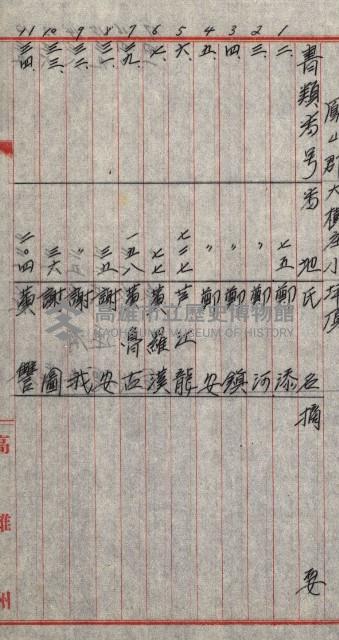 鳳山郡大樹庄小坪頂
書類番号 番地 氏名 摘要
1 二、 七五 鄭添
2 三、 〃 鄭河
3 四、 〃 鄭鎮
4 五、 〃 鄭安
5 六、 七二七 江龍
6 七、 七七 黃羅漢
7 二九、 一五八 黃魯古
8 三一、 三五 謝安
9 三二、 〃 謝我
10 三三、 三六 謝圖
11 三四、 二〇四 黃
高雄州
高雄市立歷史博物館
KAOHSIUNG MUSEUM OF HISTORY